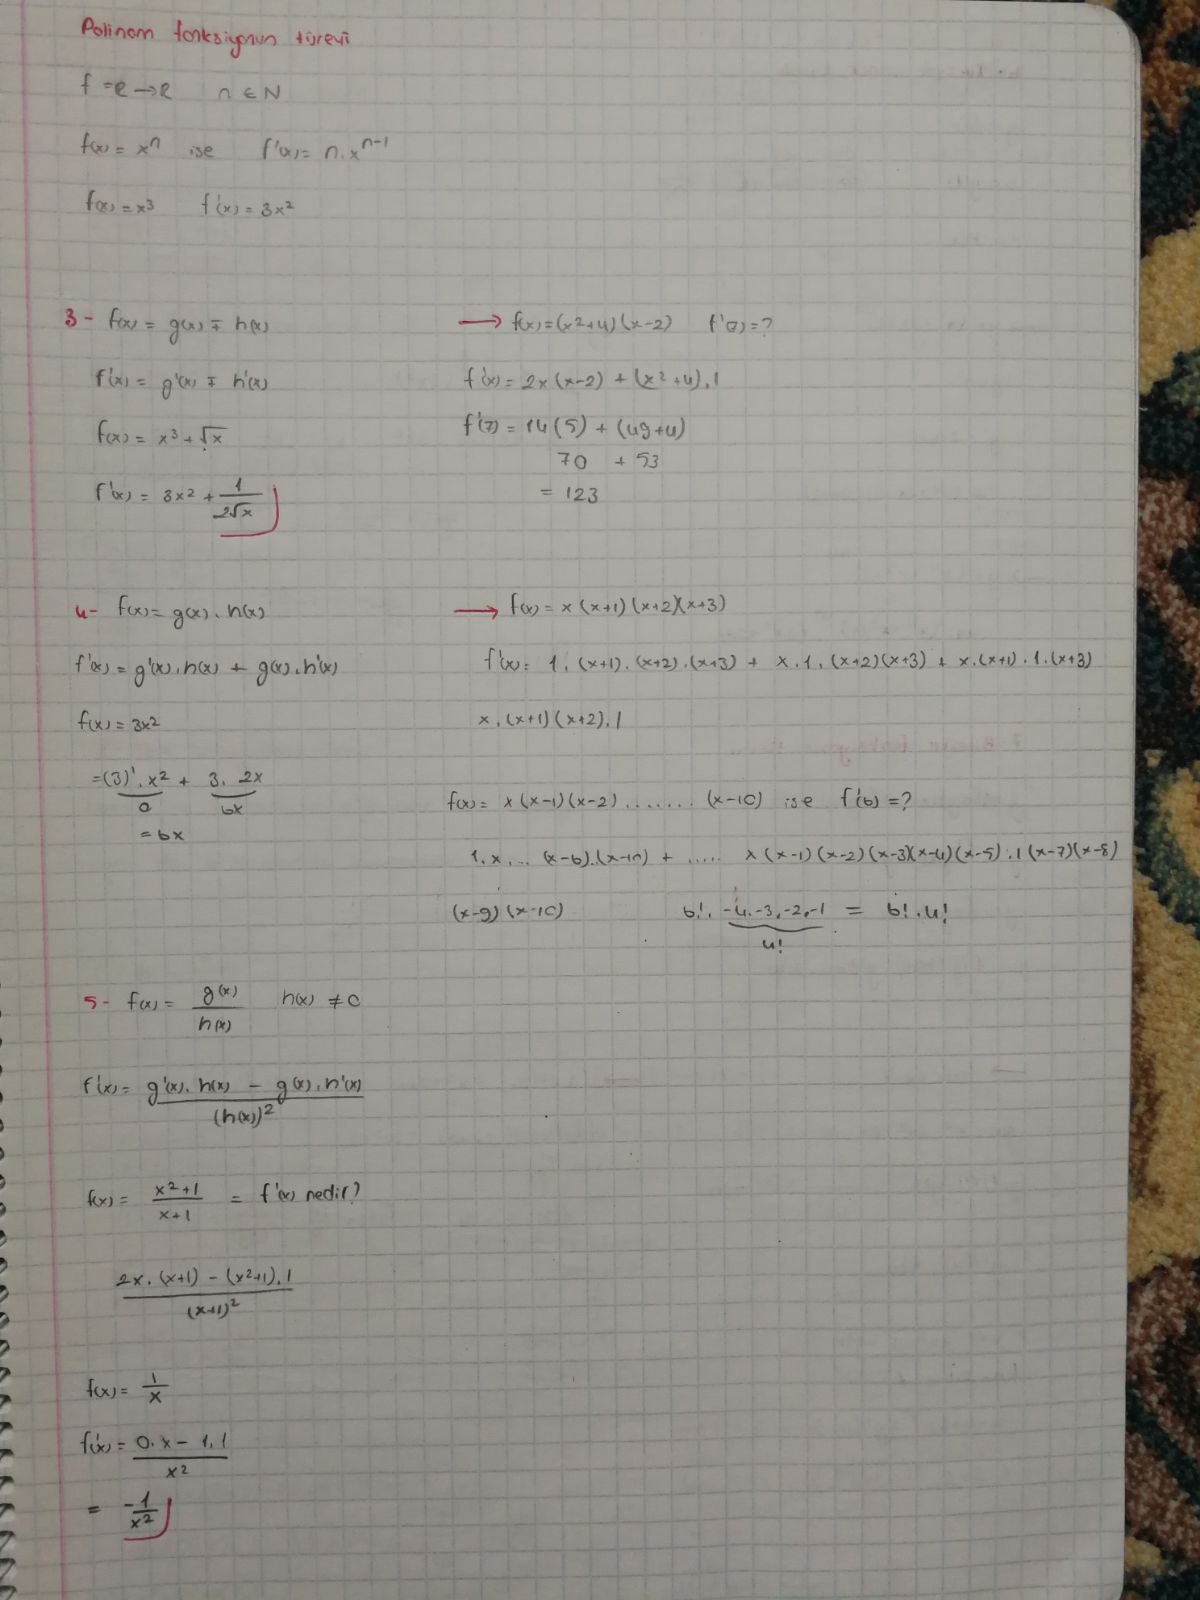 Polinom fonksiyonun türevi
f = R → R n ∈ N
f(x) = xⁿ ise f'(x) = n.xⁿ⁻¹
f(x) = x³ f'(x) = 3x²
3- f(x) = g(x) ∓ h(x)
f'(x) = g'(x) ∓ h'(x)
f(x) = x³ + √x
f'(x) = 3x² + 1/(2√x)
→ f(x) = (x²+4)(x-2) f'(7) = ?
f'(x) = 2x(x-2) + (x²+4).1
f'(7) = 14(5) + (49+4)
70 + 53
= 123
4- f(x) = g(x).h(x)
f'(x) = g'(x).h(x) + g(x).h'(x)
f(x) = 3x²
= (3)'.x² + 3. 2x
0 6x
= 6x
→ f(x) = x(x+1)(x+2)(x+3)
f'(x) = 1.(x+1).(x+2).(x+3) + x.1.(x+2)(x+3) + x.(x+1).1.(x+3)
x.(x+1)(x+2).1
f(x) = x(x-1)(x-2)........(x-10) ise f'(6) = ?
1.x... (x-6).(x-10) + ..... x(x-1)(x-2)(x-3)(x-4)(x-5).1(x-7)(x-8)
(x-9)(x-10) 6!. -4.-3.-2.-1 = 6!.4!
4!
5- f(x) = g(x)/h(x) h(x) ≠ 0
f'(x) = (g'(x).h(x) - g(x).h'(x))/(h(x))²
f(x) = (x²+1)/(x+1) = f'(x) nedir?
(2x.(x+1) - (x²+1).1)/(x+1)²
f(x) = 1/x
f'(x) = (0.x - 1.1)/x²
= -1/x²